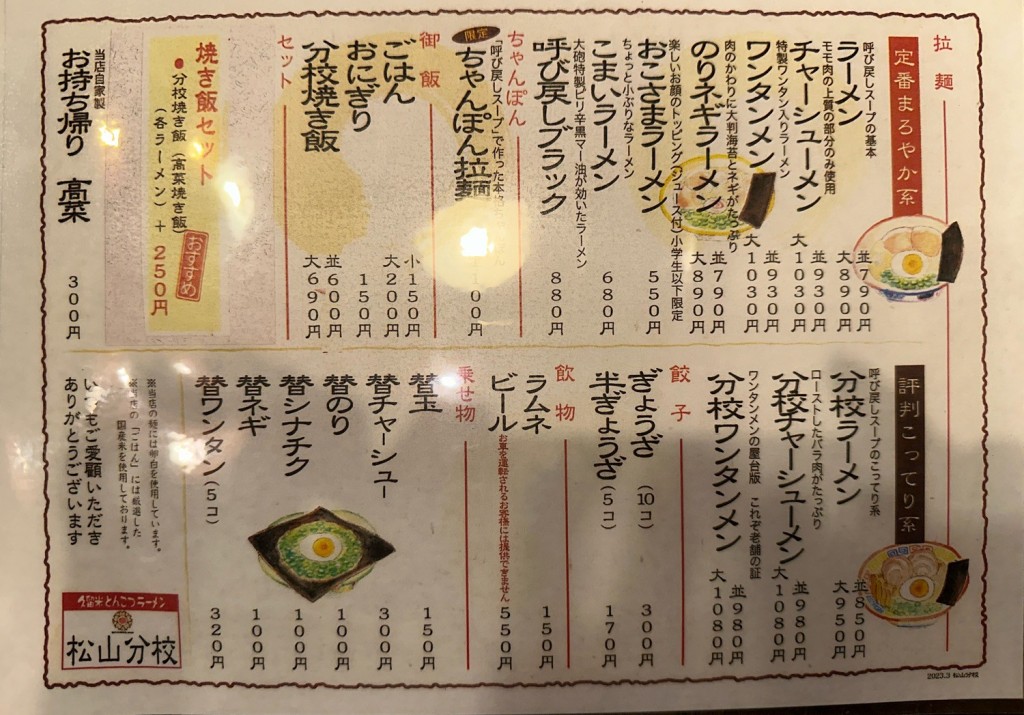 拉麺
定番まろやか系
呼び戻しスープの基本
ラーメン
並790円
大890円
モモ肉の上質の部分のみ使用
チャーシューメン
並930円
大1030円
特製ワンタン入りラーメン
ワンタンメン
並930円
大1030円
肉のかわりに大判海苔とネギがたっぷり
のりネギラーメン
並790円
大890円
楽しいお顔のトッピング(ジュース付)小学生以下限定
おこさまラーメン
550円
ちょっと小ぶりなラーメン
こまいラーメン
680円
大砲特製ピリ辛黒マー油が効いたラーメン
呼び戻しブラック
880円
ちゃんぽん
「呼び戻しスープ」で作った本
限定
ちゃんぽん拉麺
00円
御飯
ごはん
小150円
大200円
おにぎり
150円
分校焼き飯
並600円
大690円
セット
焼き飯セット
●分校焼き飯(高菜焼き飯)
(各ラーメン)+250円
おすすめ
当店自家製
お持ち帰り 高菜
300円
評判こってり系
呼び戻しスープのこってり系
分校ラーメン
並850円
大950円
ローストしたバラ肉がたっぷり
分校チャーシューメン
並980円
大1080円
ワンタンメンの屋台版 これぞ老舗の証
分校ワンタンメン
並980円
大1080円
餃子
ぎょうざ(10コ)
300円
半ぎょうざ(5コ)
170円
飲物
ラムネ
150円
ビール
お車を運転されるお客様には提供できません
550円
乗せ物
替玉
150円
替チャーシュー
300円
替のり
100円
替シナチク
100円
替ネギ
100円
替ワンタン(5コ)
320円
※当店の麺には卵白を使用しています。
※当店の「ごはん」には厳選した
国産米を使用しております。
いつもご愛顧いただき
ありがとうございます
久留米とんこつラーメン
松山分校
2023.3 松山分校